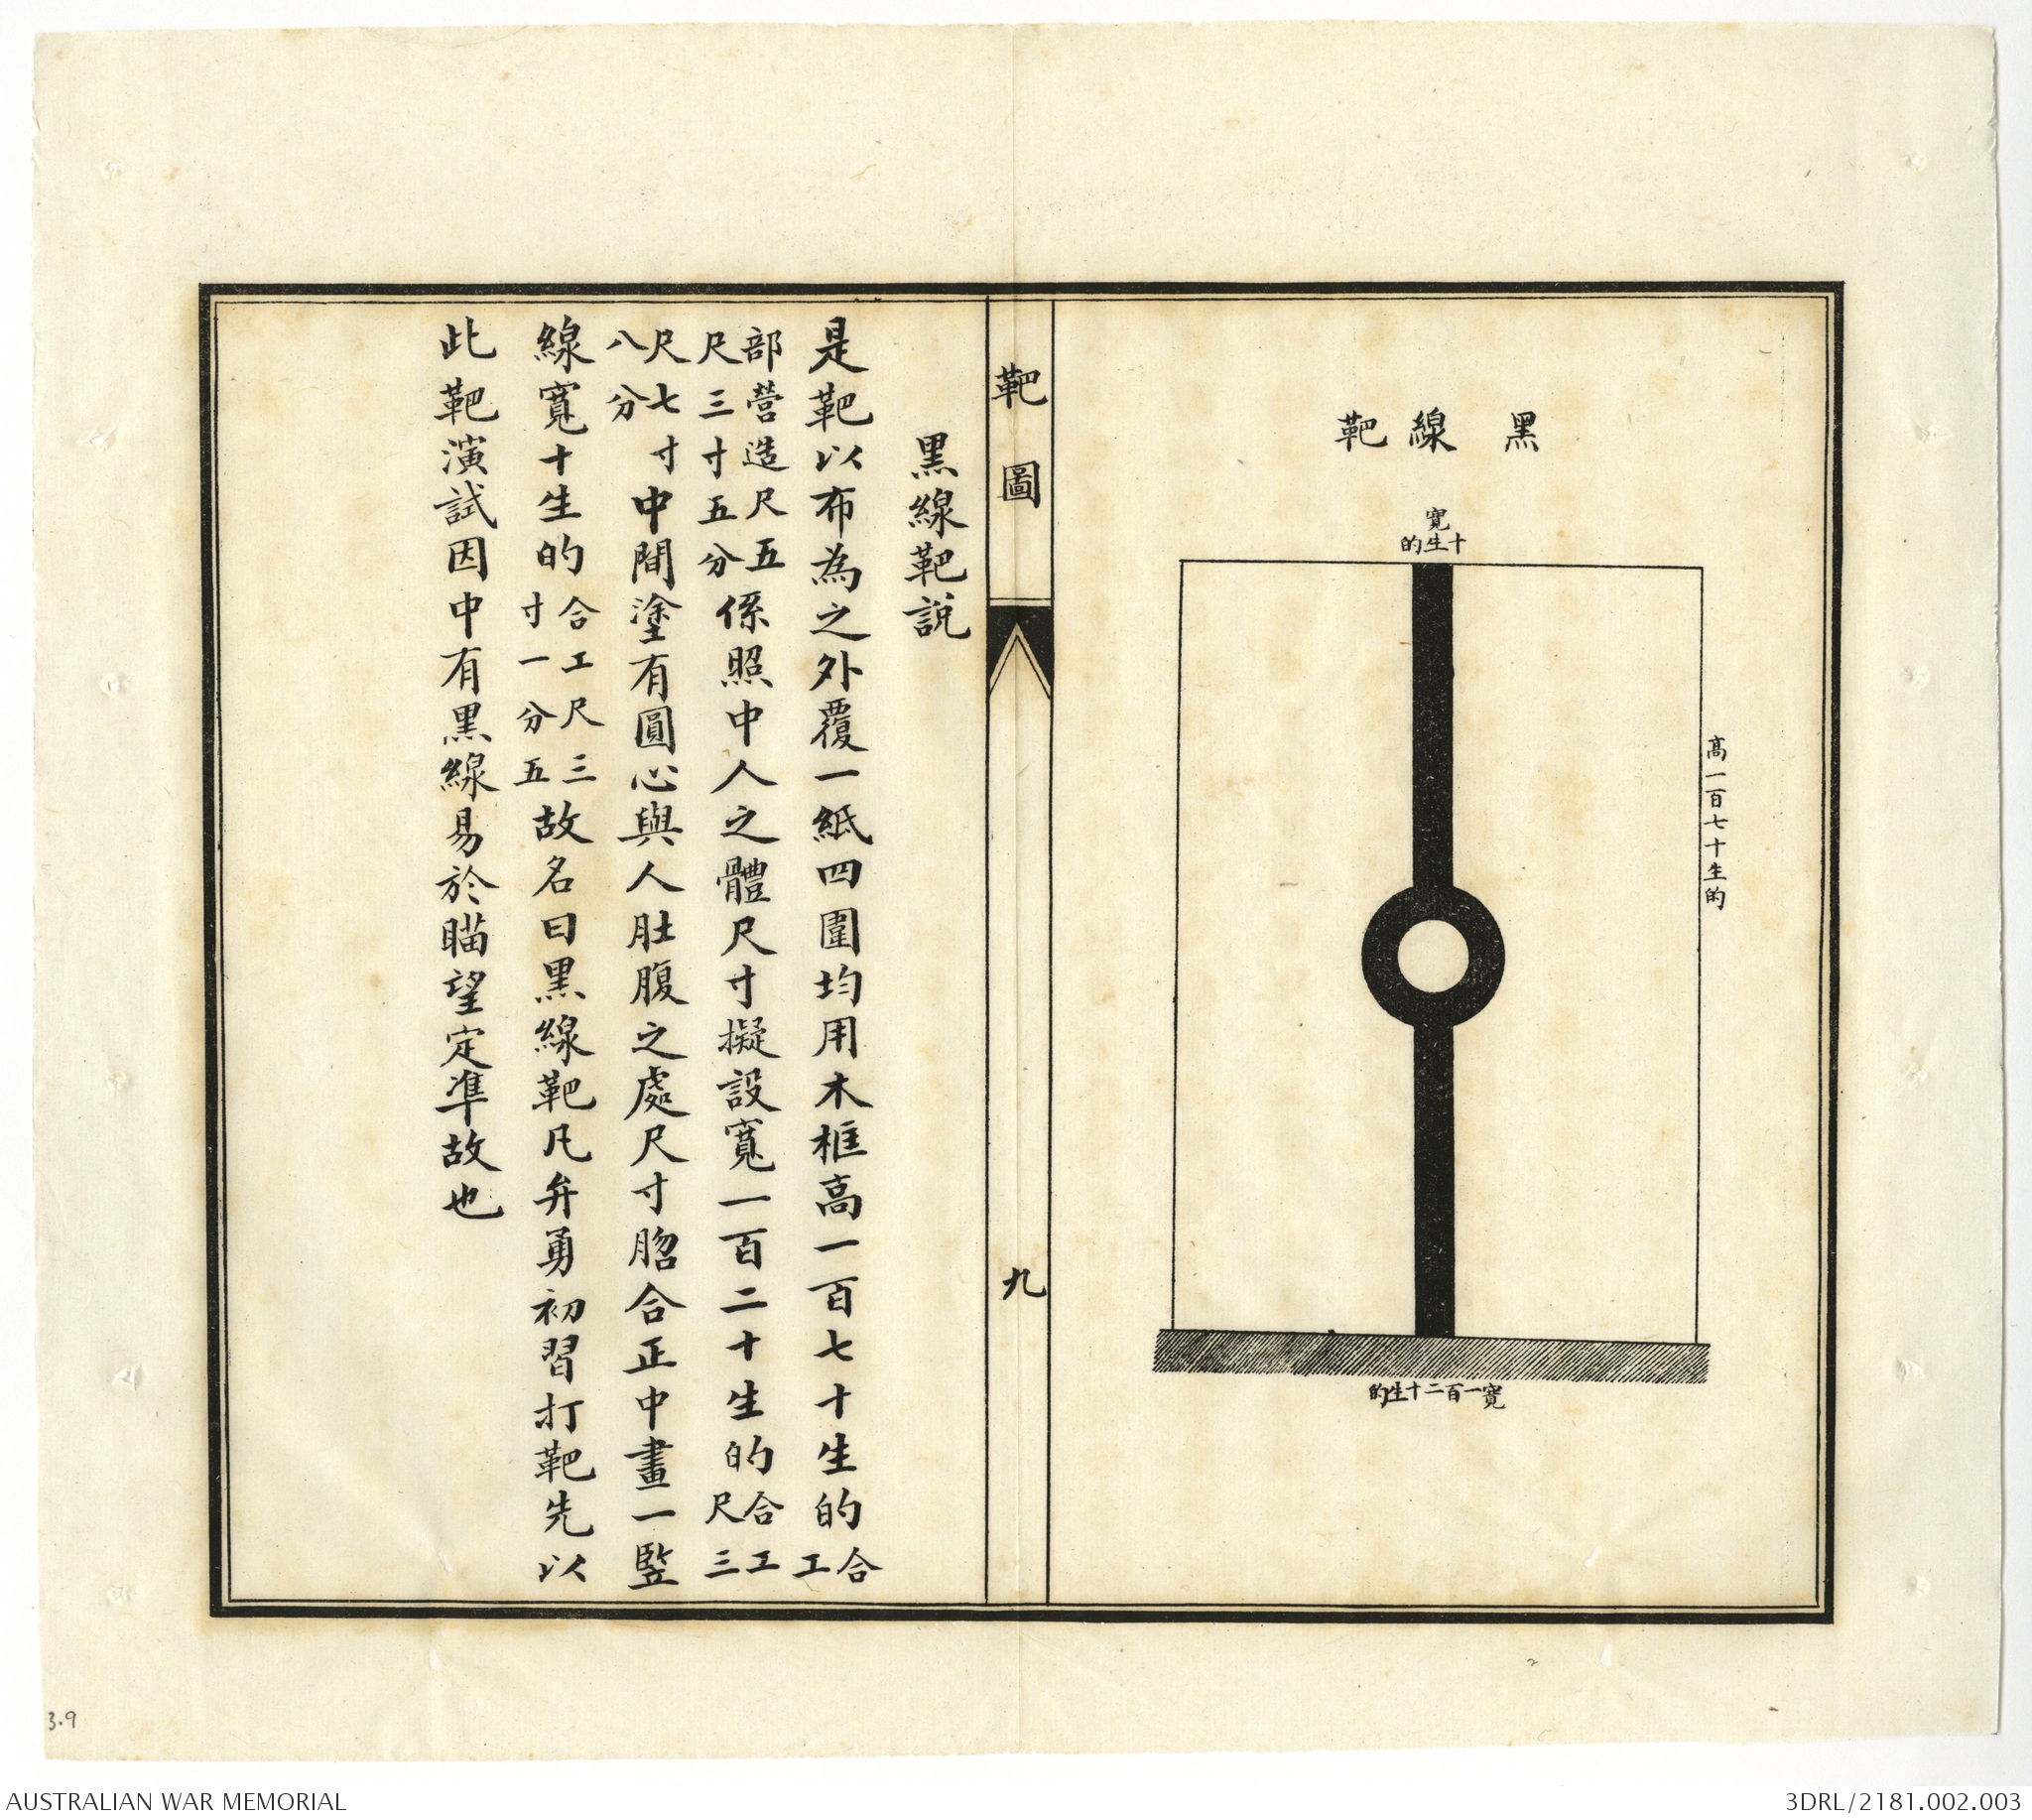 黑線靶
寬
十生的
高一百七十生的
寬一百二十生的
靶圖
九
黑線靶說
是靶以布為之外覆一紙四圍均用木框高一百七十生的合工
部營造尺五尺三寸五分係照中人之體尺寸擬設寬一百二十生的合工尺三
尺七寸八分中間塗有圓心與人肚腹之處尺寸脗合正中畫一竪
線寬十生的合工尺三寸一分五故名曰黑線靶凡弁勇初習打靶先以
此靶演試因中有黑線易於瞄望定凖故也
3.9
AUSTRALIAN WAR MEMORIAL
3DRL/2181.002.003